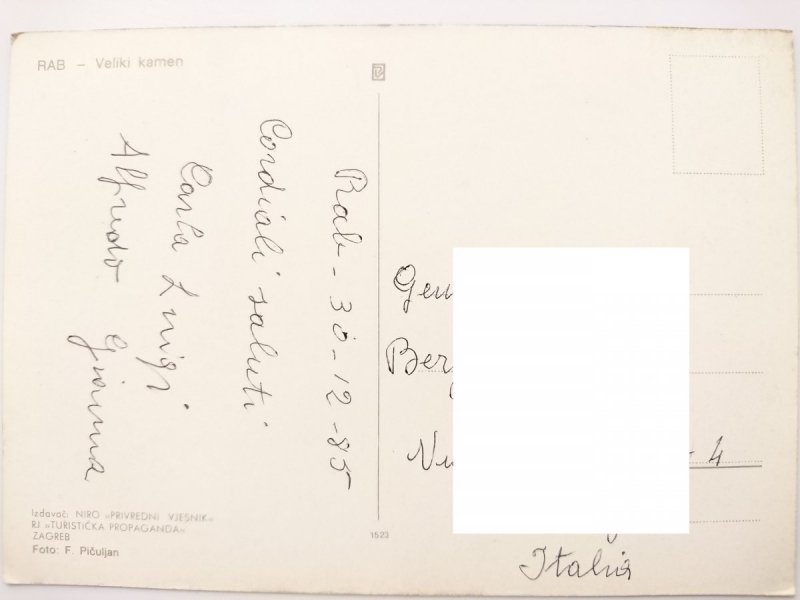 RAB – Veliki kamen
Rab - 30-12-85
Cordiali saluti
Carla Luigi
Alfredo Gianna
Izdavač: NIRO »PRIVREDNI VJESNIK«
RJ »TURISTIČKA PROPAGANDA«
ZAGREB
Foto: F. Pičuljan
1523
4
Italia